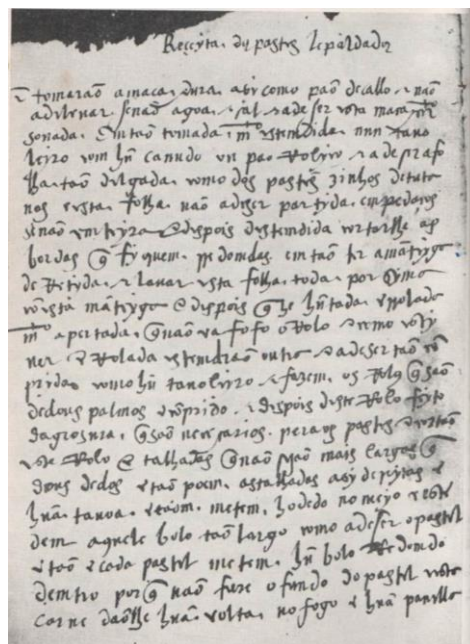 Reçeyta dos pastes lepaldados
tomaraõ a maça dura asi como paõ de callo e naõ
a de levar senaõ agoa e sal e a de ser esta masa
sovada e entaõ tomada estendida nun tavo
leiro com hũ canudo un pao Roliso e a de ser a fo
lha taõ delgada como dos pasteis zinhos de tuta
nos e esta folha naõ a de ser partyda em pedaços
senaõ emteyra e despois destemdida cortarlhe as
bordas fiquem Redomdas em taõ ter a mãteyga
deRetyda e lavar esta folha toda por syma
cõ esta mãteyga e despois hũtada emrolada
apertada naõ va fofo o Rolo e como esty
ver e Rolada estemderaõ outra e a de ser taõ cõ
prida como hũ tavoleiro e fazem os Rolos saõ
de dous palmos e cõprido e despois deste Rolo feyto
da grosura saõ neçesarios pera os pastes cortaõ
este Rolo e talhadas naõ sejaõ mais largas
dous dedos e taõ poem as talhadas asy de pitas e
hũa tavoa e metem ho dedo no meyo e este
dem aquele bolo taõ largo como a de ser o pastel
e taõ e cada pastel metem hũ bolo Redomdo
demtro por naõ fure o fundo do pastel este
carne daõlhe hũa volta no fogo e hũa panella